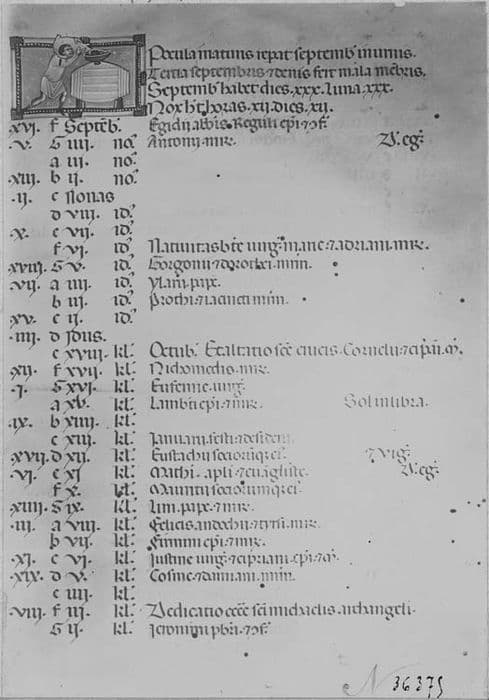 Pocula matuus reparat septemb munus.
Tertia septembris & denis ferit mala mēbris.
Septemb habet dies. xxx. luna xxx.
Nox ht horas. xii. dies. xii.
xvi. f Septēb. Egidii abbis. Reguli epi. & 9f.
.v. G iiii. no. Antonii mr. D. eg.
a iii. no.
.xiii. b ii. no.
.ii. c Nonas
d viii. id.
.x. e vii. id.
f vi. id. Natiuitas bte uirg. marie & adriani. mr.
xviii. G v. id. Gorgonii & dorothei. mrm.
.vii. a iiii. id. ylarii. pape.
b iii. id. Prothi. & iacincti mrm.
xv. c ii. id.
.iiii. d Idus.
e xviii. kl. Octub. Exaltatio sce crucis. Cornelii & cipani. m.
xii. f xvii. kl. Nichomedis. mr.
.i. G xvi. kl. Eufemie. uirg.
a xv. kl. Lambti epi & mr. Sol in libra.
.ix. b xiiii. kl.
c xiii. kl. Januarii. festi. & desiderii
xvii. d xii. kl. Eustachii socior. & uig.
.vi. e xi kl. Mathi. apli & euāgliste. D. eg.
f x. kl. Mauritii
xiiii. G ix. kl. Lini. pape. & mr.
.iii. a viii. kl. Felicis. andochii & tirsi. mr.
b vii. kl. Firmini epi & mr.
.xi. c vi. kl. Justine uirg. & cipriani. epi. & m.
.xix. d v. kl. Cosme. & damiani. mrm.
e iiii. kl.
.viii. f iii. kl. Dedicatio ecce sci michaelis. archangeli.
G ii. kl. Jeronimi pbri. & 9f.
N 36375